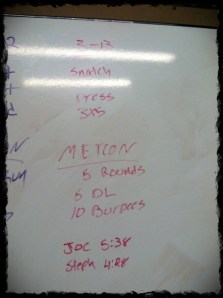 2-13
Snatch
Press
3x5
METCON
5 Rounds
5 DL
10 Burpees
Joc 5:38
Steph 4:28